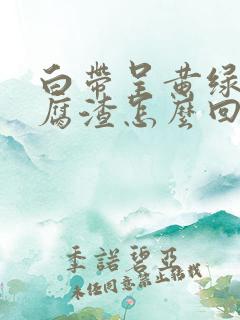 白带呈黄绿
腐渣怎麽回
季諾碧亞
未经同意禁止转载